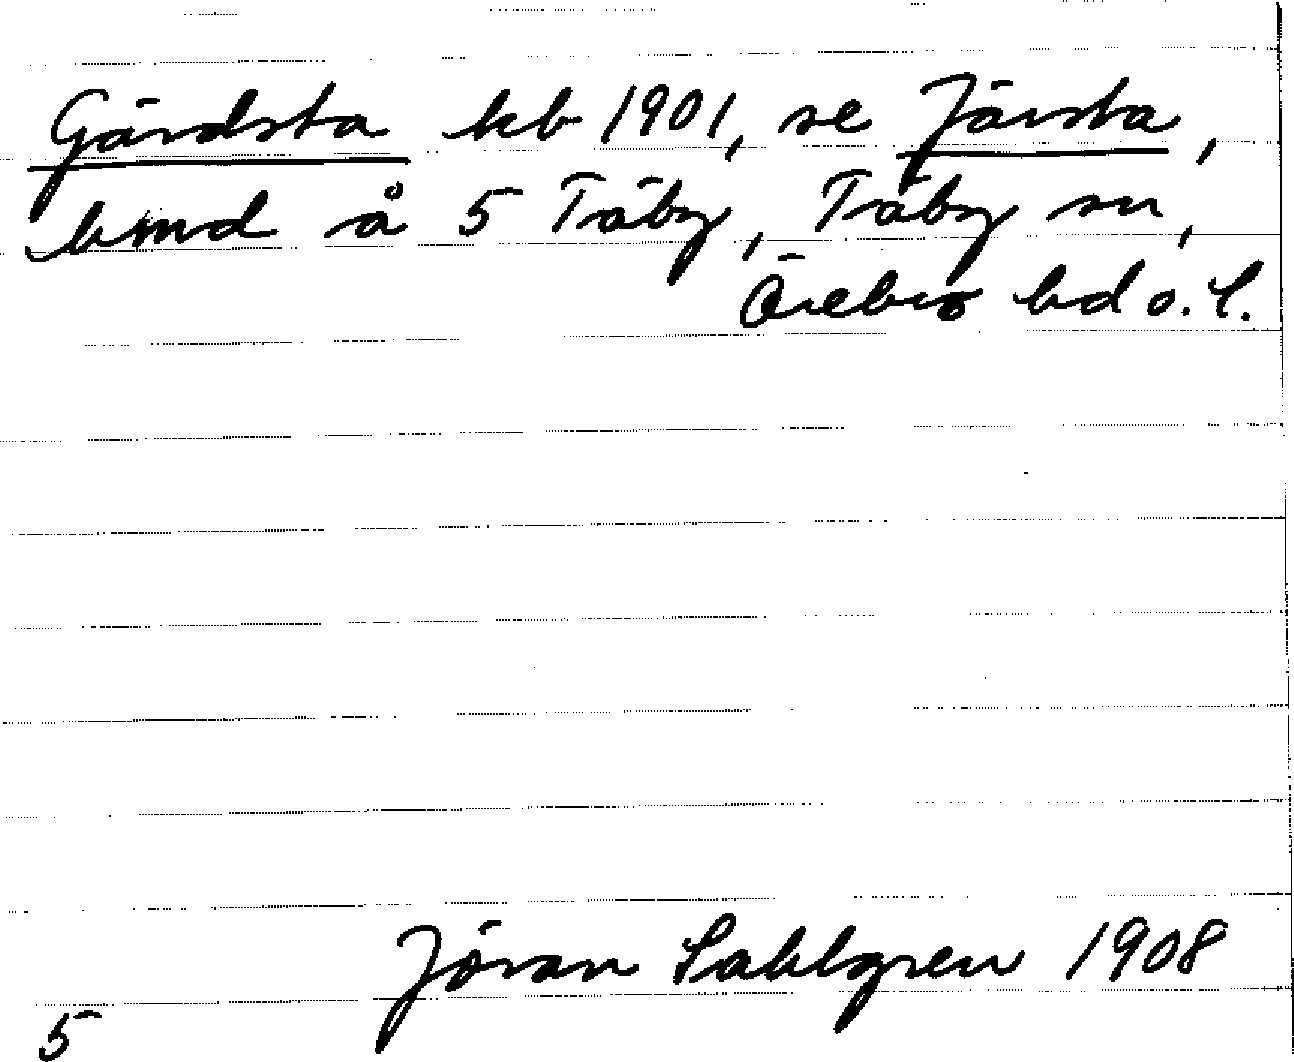 Gärdsta kb 1901, se Järsta,
hmd å 5 Täby, Täby sn,
Örebro hd o. l.
Jöran Sahlgren 1908
5